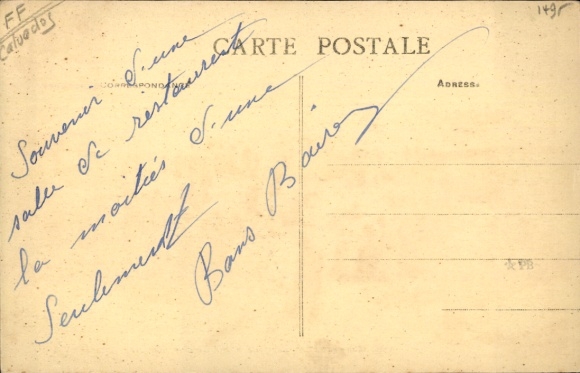 FF
Calvados
1495
CARTE POSTALE
CORRESPONDANCE
ADRESSE
Souvenir d'une
salle de restaurant
la moitiés d'une
Seulement
Bons Baisers